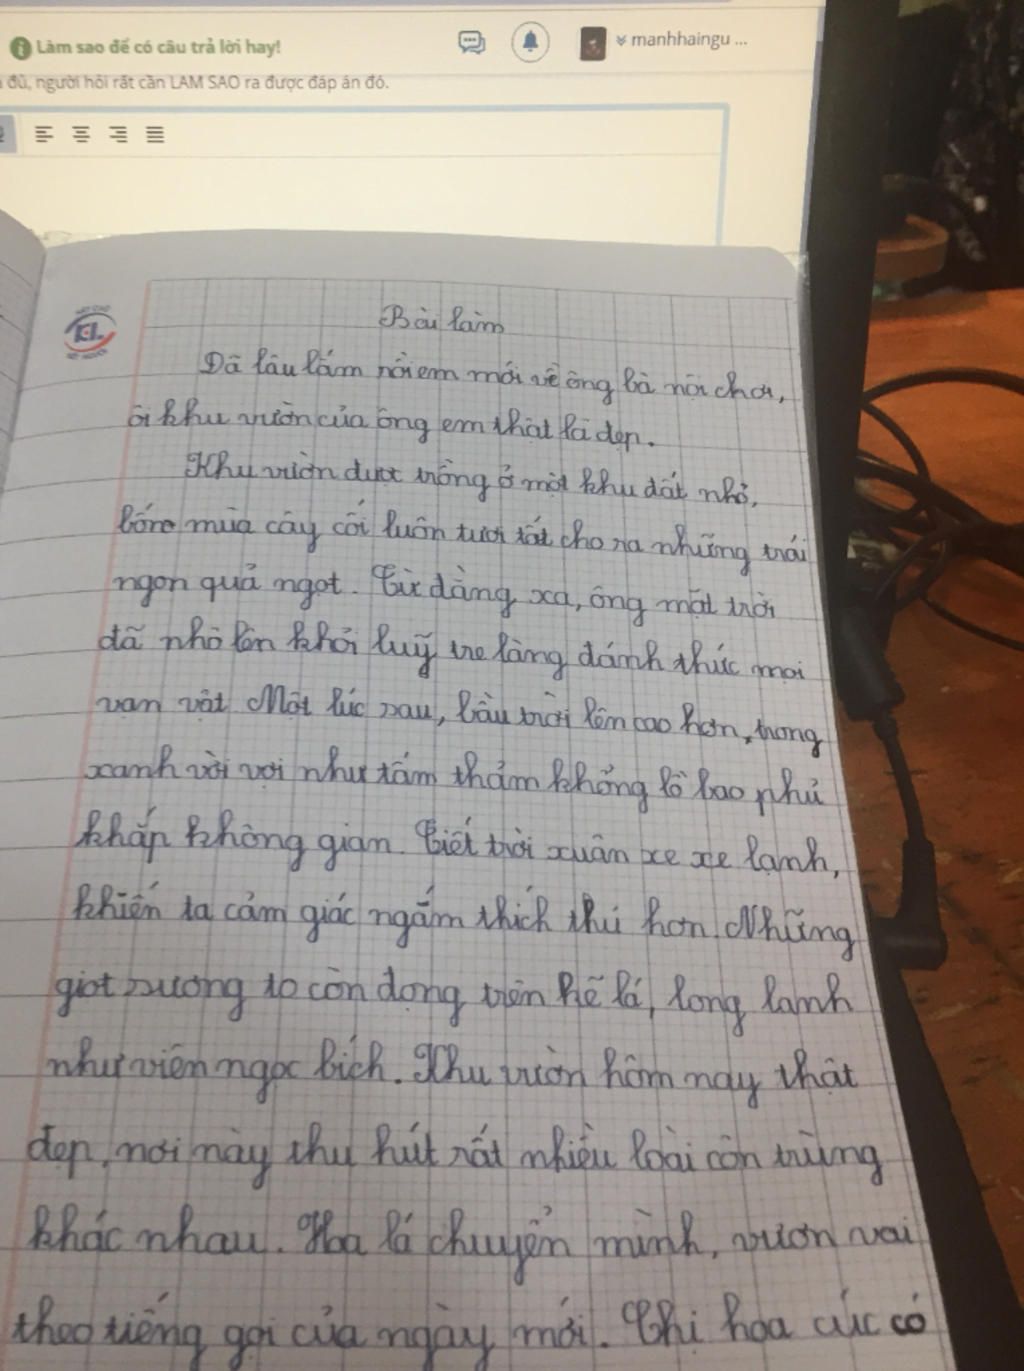 Làm sao để có câu trả lời hay!
manhhaingu ...
đủ, người hỏi rất cần LAM SAO ra được đáp án đó.
KL
Bài làm
Đã lâu lắm rồi em mới về ông bà nội chơi,
ôi khu vườn của ông em thật là đẹp.
Khu vườn được trồng ở một khu đất nhỏ,
bốn mùa cây cối luôn tươi tốt cho ra những trái
ngon quả ngọt. Từ đằng xa, ông mặt trời
đã nhô lên khỏi luỹ tre làng đánh thức mọi
vạn vật Một lúc sau, bầu trời lên cao hơn, trong
xanh vời vợi như tấm thảm khổng lồ bao phủ
khắp không gian. Tiết trời xuân xe xe lạnh,
khiến ta cảm giác ngắm thích thú hơn. Những
giọt sương to còn đọng trên kẽ lá, long lanh
như viên ngọc bích. Khu vườn hôm nay thật
đẹp, nơi này thu hút rất nhiều loài côn trùng
khác nhau. Hoa lá chuyển mình, vươn vai
theo tiếng gọi của ngày mới. Chị hoa cúc có